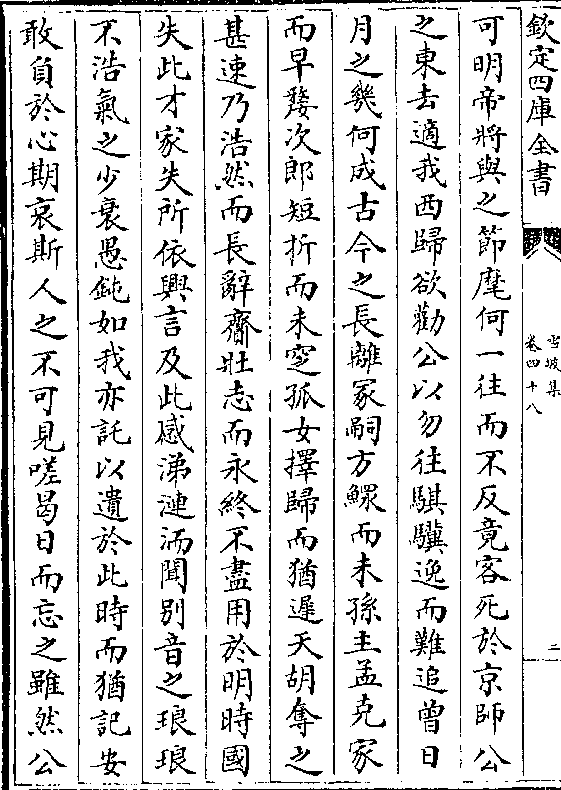 欽定四庫全書
雪坡集
卷四十八
二
可明帝將與之節麾何一往而不反竟客死於京師公
之東去適我西歸欲勸公以勿往騏驥逸而難追曾日
月之幾何成古今之長離冢嗣方鰥而未孫主孟克家
而早嫠次郎短折而未窆孤女擇歸而猶遲天胡奪之
甚速乃浩然而長辭齎壯志而永終不盡用於明時國
失此才家失所依興言及此感涕漣洏聞別音之琅琅
不浩氣之少衰愚鈍如我亦託以遺於此時而猶記安
敢負於心期哀斯人之不可見嗟曷日而忘之雖然公